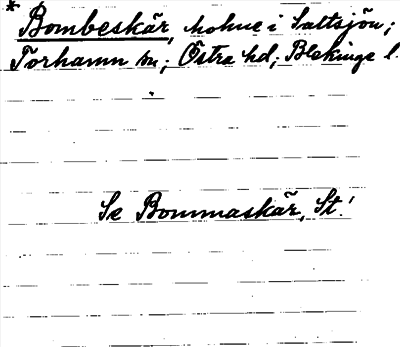 * Bombeskär, holme i Saltsjön;
Torhamn sn; Östra hd; Blekinge l.
Se Bommaskär, St.!